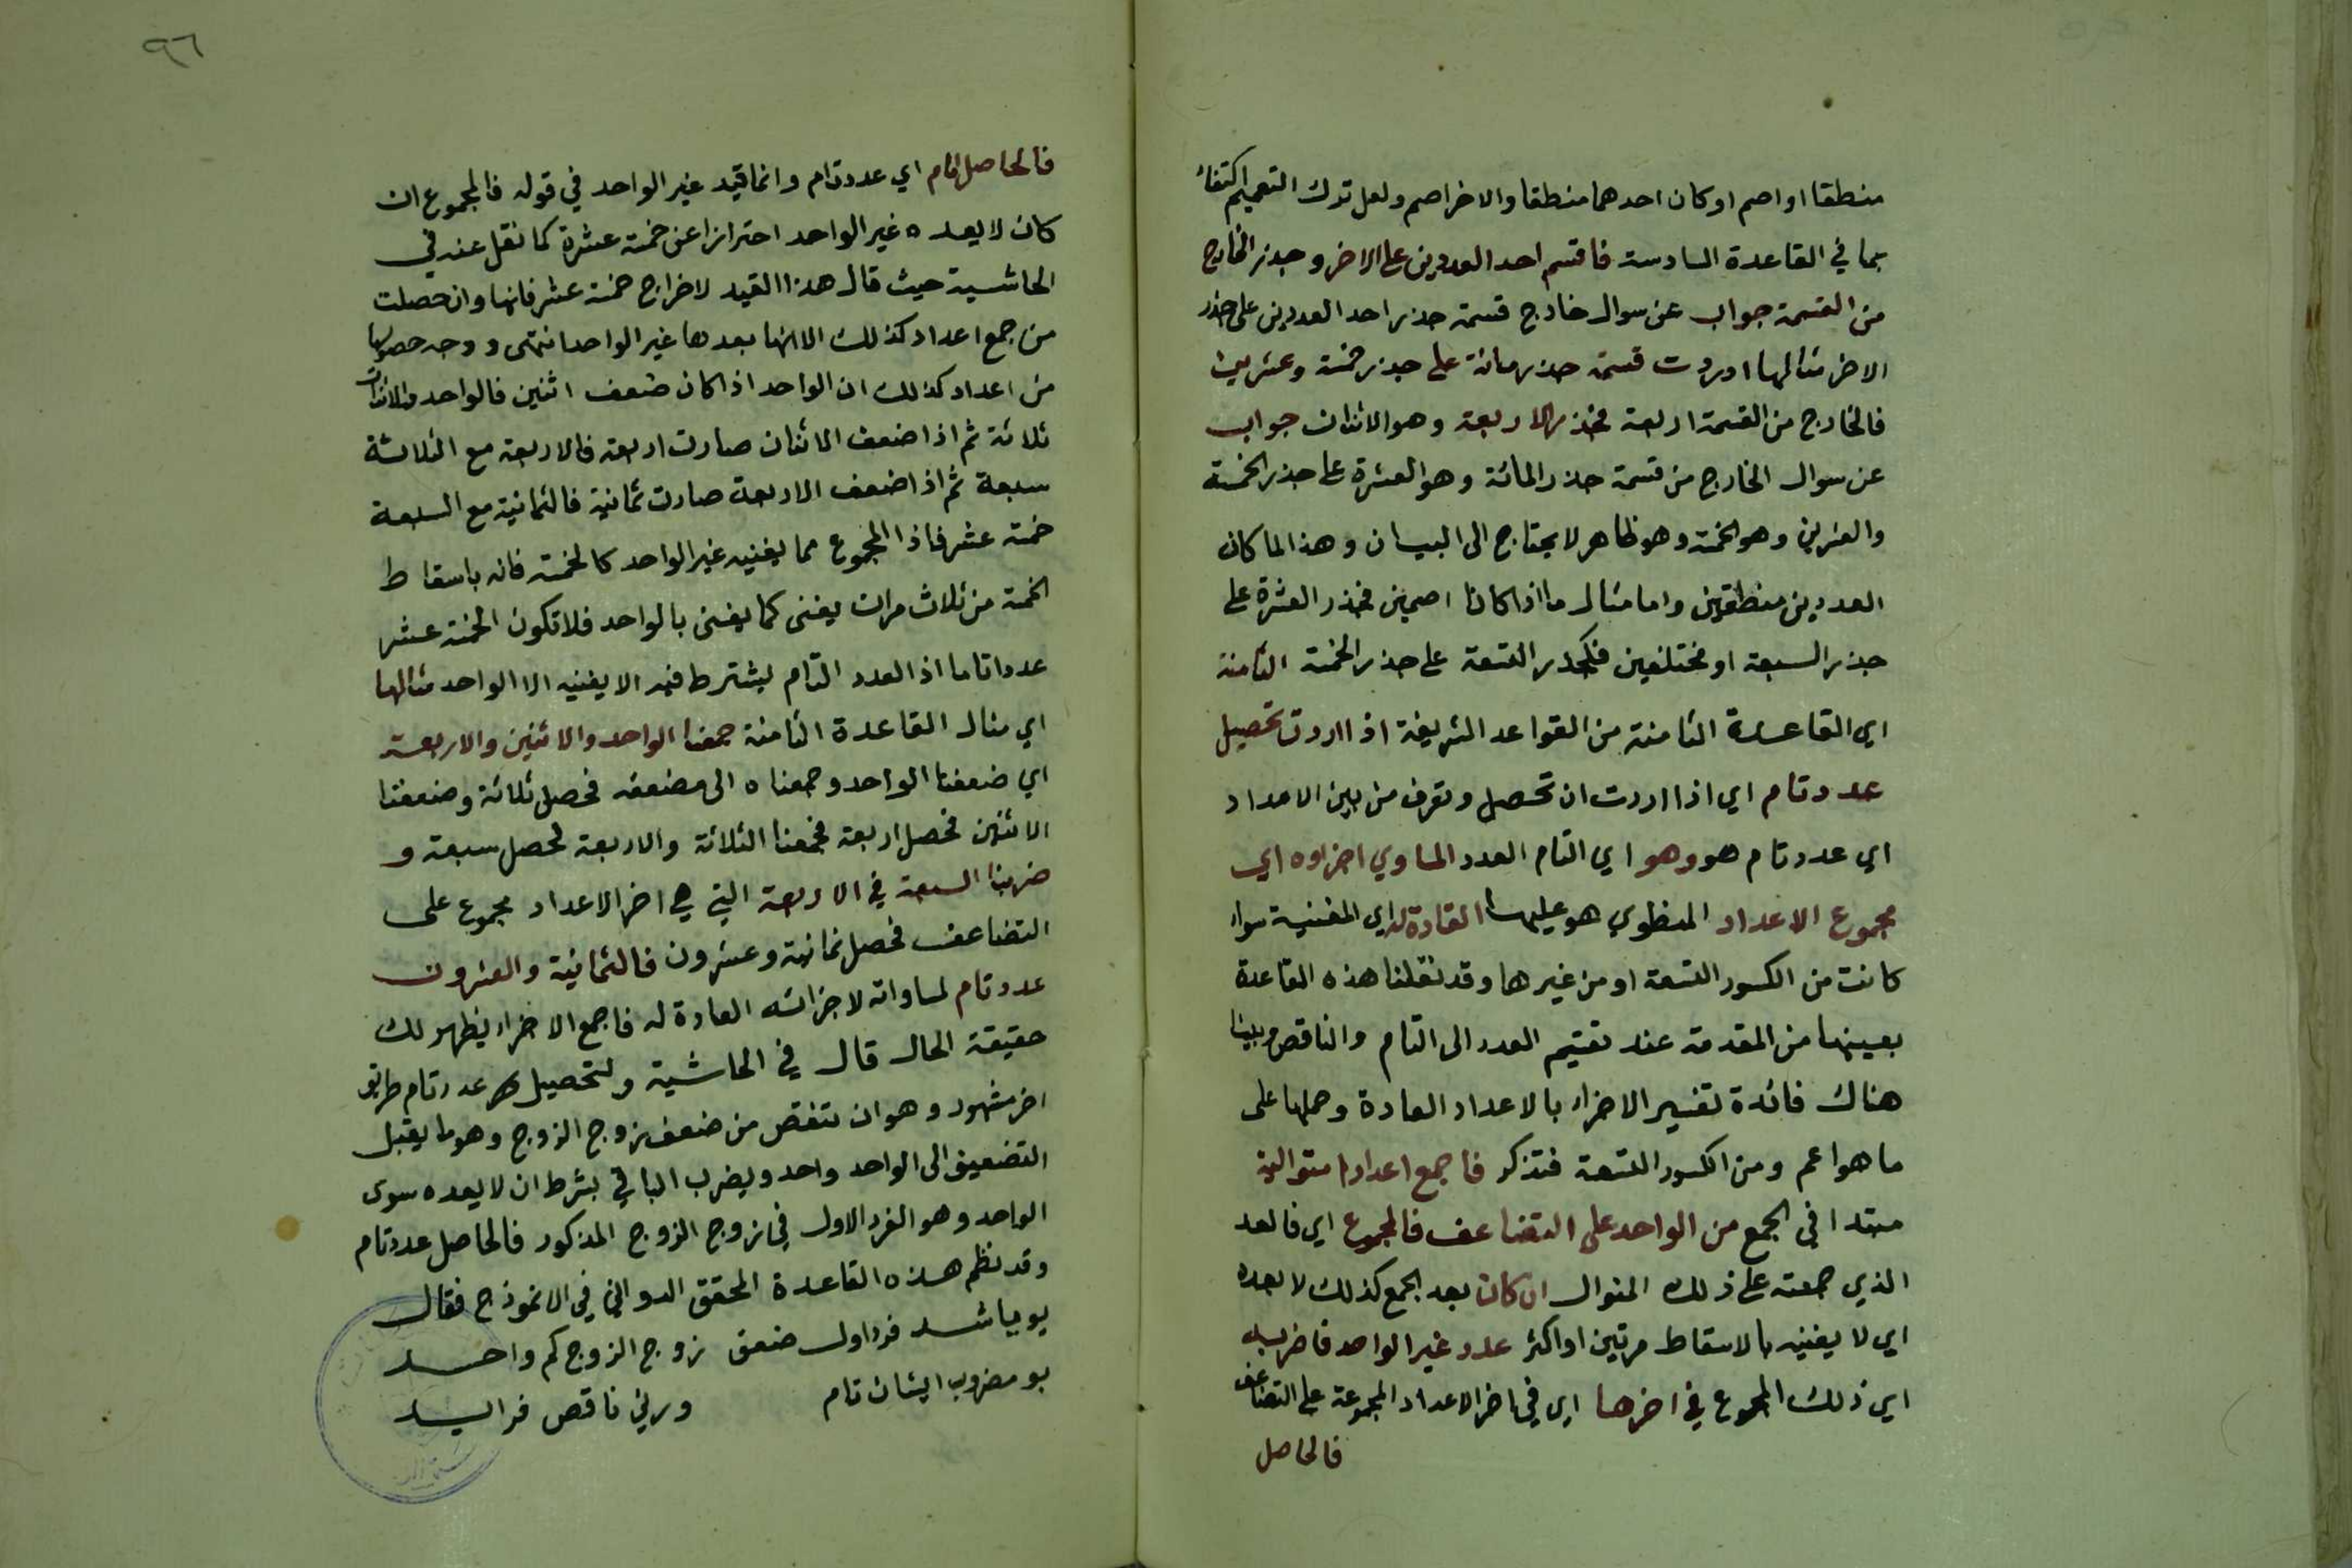 منطقا او اصم او كان احدهما منطقا والاخر اصم ولعل ترك التعميم اكتفاء
بما في القاعدة السادسة فاقسم احد العددين على الاخر وجذر الخارج
من القسمة جواب عن سوال خارج قسمة جذر احد العددين على جذر
الاخر مثالها اردت قسمة جذر مائة على جذر خمسة وعشرين
فالخارج من القسمة اربعة فجذر الاربعة وهو الاثنان جواب
عن سوال الخارج من قسمة جذر المائة وهو العشرة على جذر الخمسة
والعشرين وهو الخمسة وهو ظاهر لا يحتاج الى البيان وهذا لما كان
العددين منطقين واما مثال ما اذا كانا اصمين فجذر العشرة على
جذر السبعة او مختلفين فكجذر التسعة على جذر الخمسة الثامنة
اي القاعدة الثامنة من القواعد الشريفة اذا اردت تحصيل
عدد تام اي اذا اردت ان تحصل وتعرف من بين الاعداد
اي عدد تام هو وهو اي التام العدد المساوي اجزاوه اي
مجموع الاعداد المنطوي هو عليها العادة له اي المفنية سواء
كانت من الكسور التسعة او من غيرها وقد نقلنا هذه القاعدة
بعينها من المقدمة عند تقسيم العدد الى التام والناقص وبينا
هناك فائدة تفسير الاجزاء بالاعداد العادة وحملها على
ما هو اعم ومن الكسور التسعة فتذكر فاجمع اعدادا متوالية
مبتدا في الجمع من الواحد على التضاعف فالمجموع اي فالعد
الذي جمعته على ذلك المنوال ان كان بعد الجمع كذلك لا يعده
اي لا يفنيه بالاسقاط مرتين او اكثر عدد غير الواحد فاضربه
اي ذلك المجموع في اخرها اي في اخر الاعداد المجموعة على التضاعف
فالحاصل
٩٦
فالحاصل تام اي عدد تام وانما قيد غير الواحد في قوله فالمجموع ان
كان لا يعده غير الواحد احترازا عن خمسة عشرة كما نقل عنه في
الحاشية حيث قال هذا القيد لاخراج خمسة عشر فانها وان حصلت
من جمع اعداد كذلك الا انها يعدها غير الواحد انتهى ووجه حصولها
من اعداد كذلك ان الواحد اذا كان ضعف اثنين فالواحد والاثنان
ثلاثة ثم اذا ضعف الاثنان صارت اربعة فالاربعة مع الثلاثة
سبعة ثم اذا ضعف الاربعة صارت ثمانية فالثمانية مع السبعة
خمسة عشر فاذا المجموع مما يفنيه غير الواحد كالخمسة فانه باسقاط
الخمسة من ثلاث مرات يفنى كما يفنى بالواحد فلا تكون الخمسة عشر
عددا تاما اذ العدد التام يشترط فيه الا يفنيه الا الواحد مثالها
اي مثال القاعدة الثامنة جمعنا الواحد والاثنين والاربعة
اي ضعفنا الواحد وجمعناه الى مضعفه فحصل ثلاثة وضعفنا
الاثنين فحصل اربعة فجمعنا الثلاثة والاربعة لحصل سبعة و
ضربنا السبعة في الاربعة التي هي اخر الاعداد مجموع على
التضاعف فحصل ثمانية وعشرون فالثمانية والعشرون
عدد تام لمساواته لاجزائه العادة له فاجمع الاجزاء يظهر لك
حقيقة الحال قال في الحاشية ولتحصيل عدد تام طريق
اخر مشهور وهو ان تنقص من ضعف زوج الزوج وهو ما يقبل
التضعيف الى الواحد واحد ويضرب الباقي بشرط ان لا يعده سوى
الواحد وهو الفرد الاول في زوج الزوج المذكور فالحاصل عدد تام
وقد نظم هذه القاعدة المحقق الدواني في الانموذج فقال
يو يباشد فرد اول ضعف زوج الزوج كم واحد
بو مضروب ايشان تام ورني ناقص